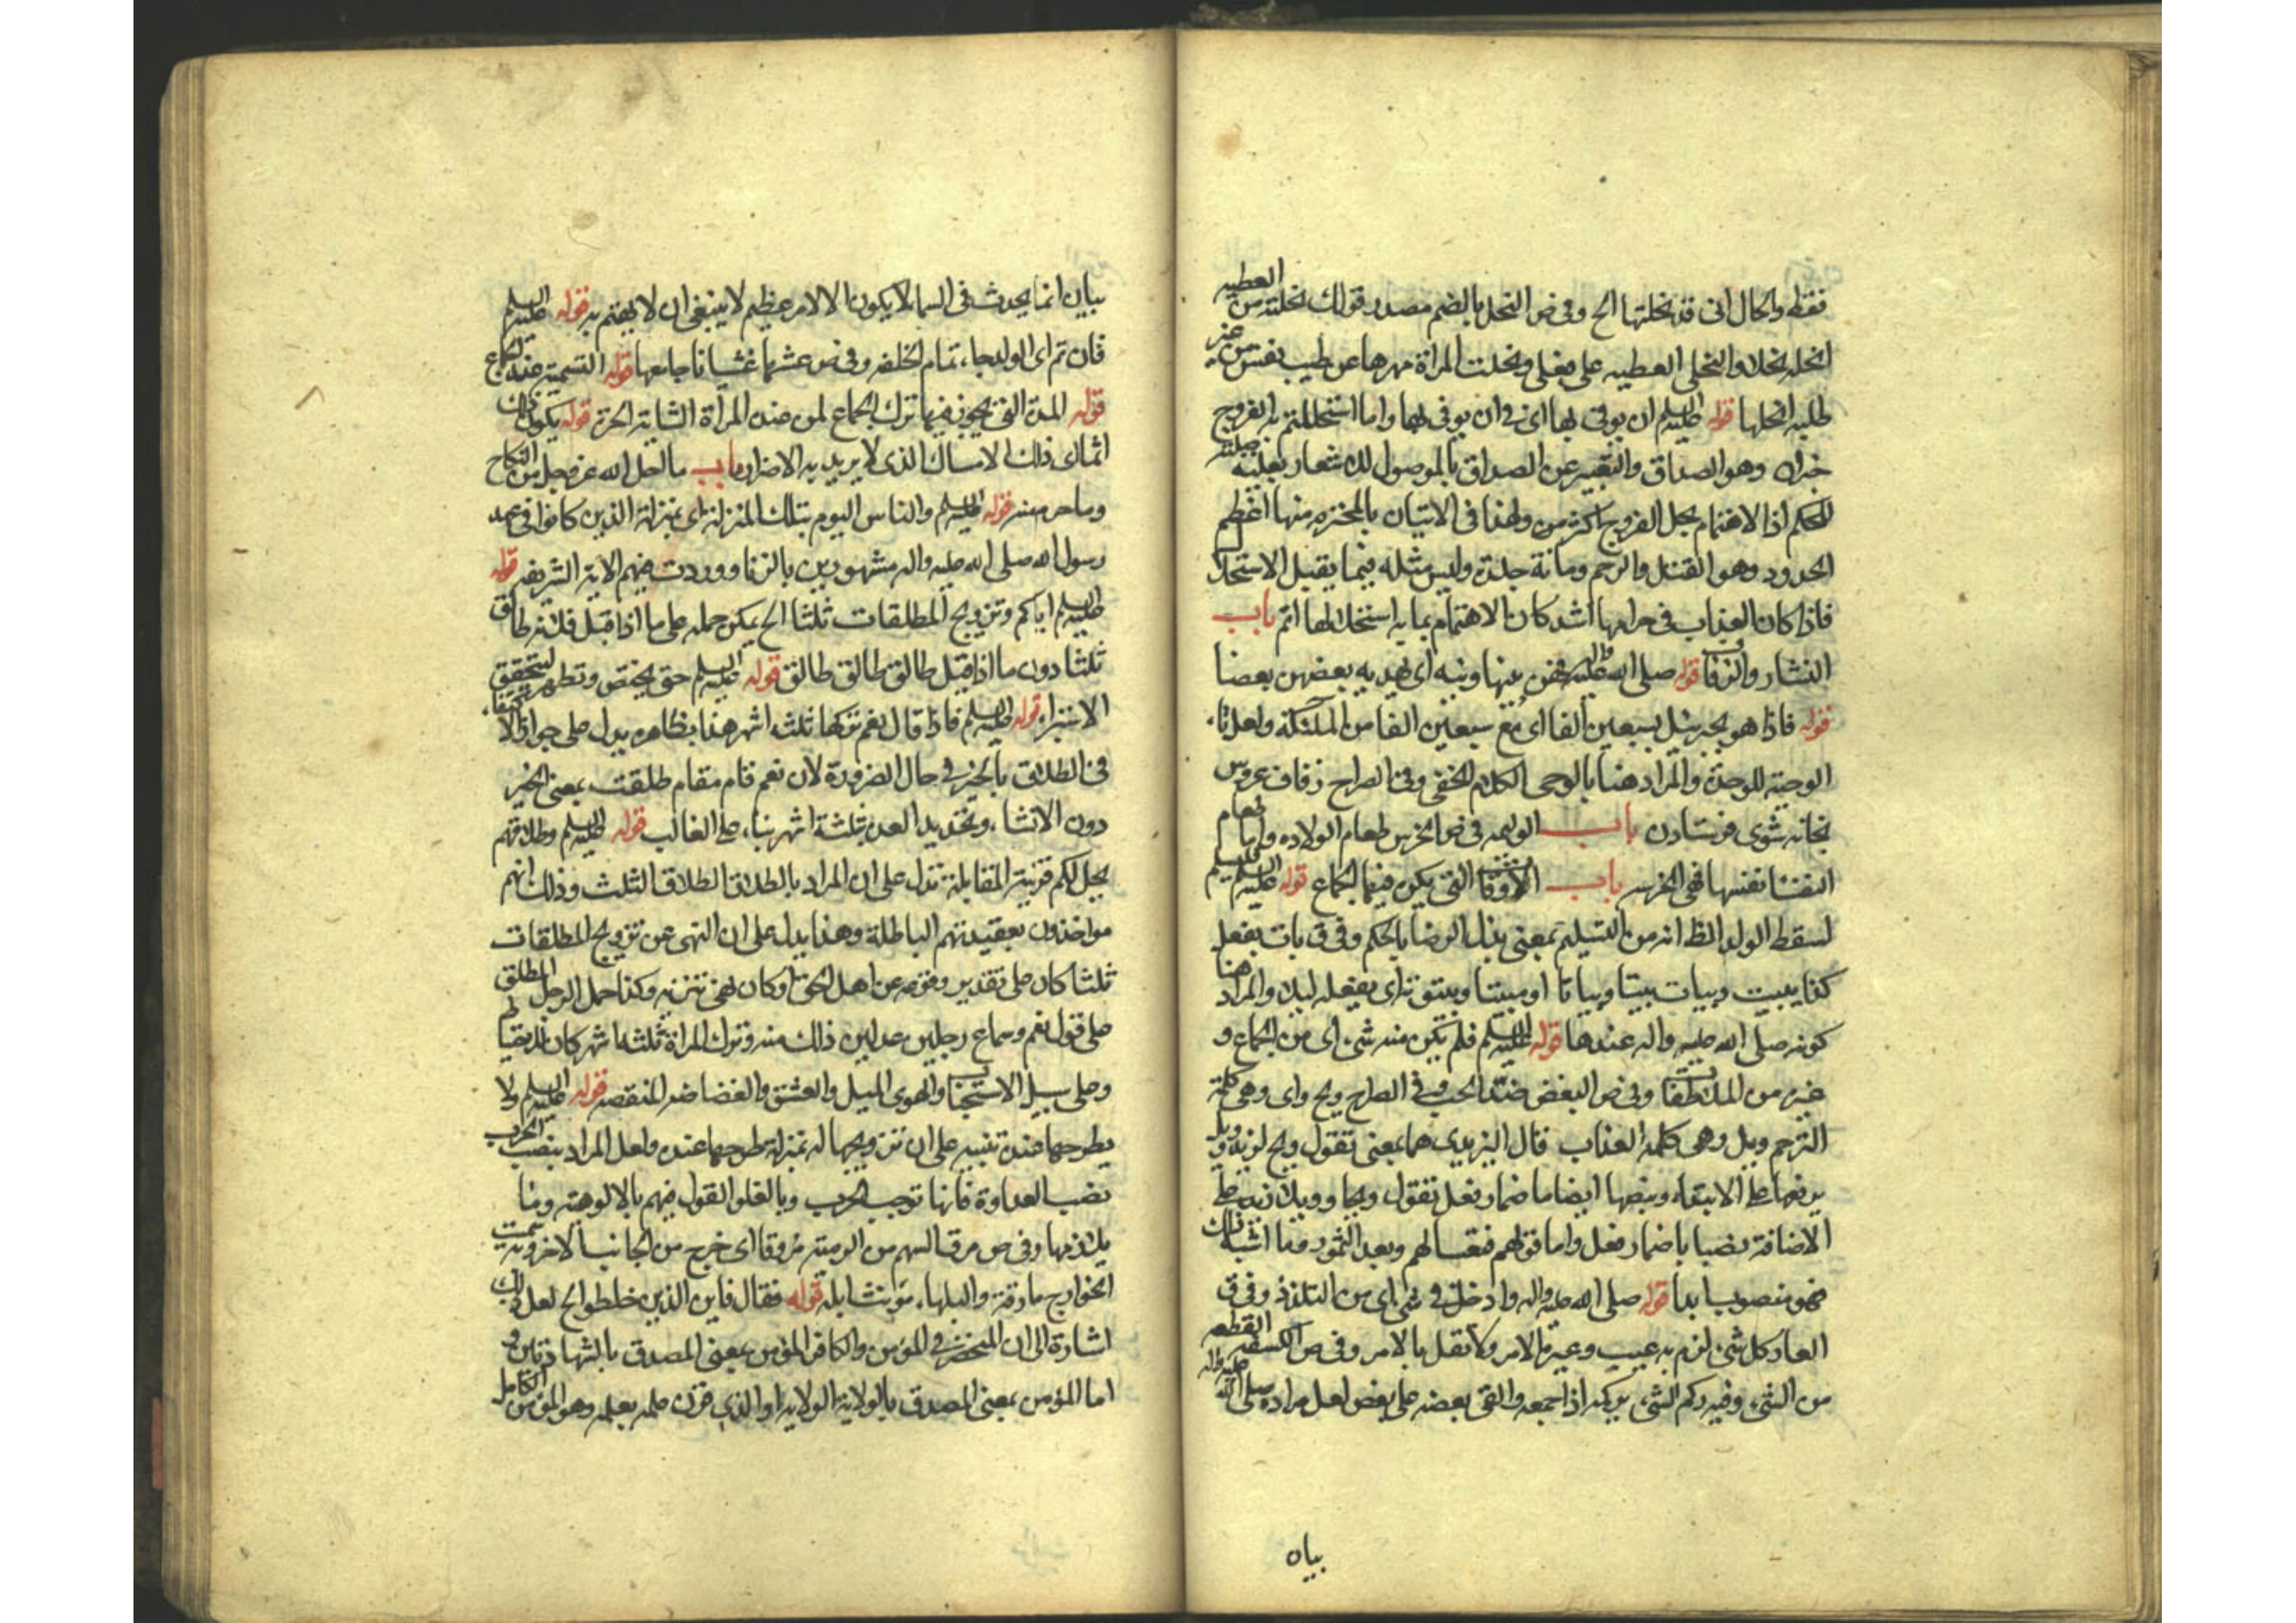 فقط والحال انى قد نحلتها الخ وفى ص النحل بالضم مصدر قولك نحلته من العطيه
انحله نحلا والنحلى العطيه على فعلى ونحلت المراة مهرها عن طيب نفس من غير
طلبه انحلها قوله عليه السلم ان يوفى بها اى فى ان يوفى بها واما استحللتم به الفروج
خبران وهو الصداق والتعبير عن الصداق بالموصول للاشعار بعلية صلته
للحكم اذ الاهتمام بحل الفروج اكثر من ولهذا فى الاتيان بالمحرم منها اعظم
الحدود وهو القتل والرجم ومائة جلدة وليس مثله فيما يقبل الاستحلال
فاذا كان العذاب فى حرامها اشد كان الاهتمام بما به استحلالها اتم باب
النثار والزفاف قوله صلى الله عليه واله بينها وبينه اى يهدى به بعضهن بعضا
قوله فاذا هو بجبرئيل بسبعين الفا اى مع سبعين الفا من الملئكة ولعل تاء
الوجبة للوحدة والمراد هنا بالوحى الكلام الخفى وفى الصراح زفاف عروس
بخانه شوى فرستادن باب الوليمه فى ص الخرس طعام الولاده واما طعام
النفسا نفسها فهى الخرسه باب الاوقات التى يكره فيها الجماع قوله عليه السلم فليسلم
لسقط الولد الظ انه من التسليم بمعنى بذل الرضا بالحكم وفى ق بات يفعل
كذا يبيت ويبات بيتا وبياتا او مبيتا وبيتوتة اى يفعله ليلا والمراد هنا
كونه صلى الله عليه واله عندها قوله عليه السلم فلم يكن منه شئ اى من الجماع و
غيره من الملاطفات وفى ص البغض ضد الحب وفى الصراح ويح واى وهى كلمة
الترحم وويل وهى كلمه العذاب قال اليزيدى هما بمعنى تقول ويح لزيد وويل
يرفعها على الابتداء وبنصبها ايضا باضمار فعل تقول ويحا وويلا لزيد على
الاضافة نصبا باضمار فعل واما قولهم فتعسا لهم وبعدا لثمود وما اشبه ذلك
فهو منصوب ابدا قوله صلى الله عليه واله وادخل فى شئ اى من التلذذ وفى ق
العار كل شئ لزم به عيب وعيره الامر ولا تقل بالامر وفى ص الكسفه القطعه
من الشئ وفيه ركم الشئ يركمه اذا جمعه والقى بعضه على بعض لعل مراده صلى الله عليه واله
بيان
بيان انما يحدث فى السما لا يكون الا لامر عظيم لا ينبغى ان لا يهتم به قوله عليه السلم
فان تم اى الولد جاء تمام الخلقه وفى ص غشيها غشيانا جامعها قوله التسمية عند الجماع
قوله المدة التى يجوز فيها ترك الجماع لمن عنده المراة الشابة الحرة قوله يكون ذلك
اثما اى ذلك الامساك الذى لا يريد به الاضرار باب ما احل الله عز وجل من النكاح
وما حرم منه قوله عليه السلم والناس اليوم بتلك المنزلة اى بمنزلة الذين كانوا فى عهد
رسول الله صلى الله عليه واله مشهورين بالزنا ووردت فيهم الاية الشريفه قوله
عليه السلم اياكم وتزويج المطلقات ثلثا الخ يمكن حمله على ما اذا قيل فلانه طالق
ثلثا دون ما اذا قيل طالق طالق طالق قوله عليه السلم حتى تحيض وتطهر ليتحقق
الاستبراء قوله عليه السلم فاذا قال نعم تركها ثلثه اشهر هذا بظاهره يدل على جواز الاكتفاء
فى الطلاق بالخبر فى حال الضرورة لان نعم قام مقام طلقت بمعنى الخبر
دون الانشاء وتحديد العدة بثلثة اشهر بناء على الغالب قوله عليه السلم وطلاقهم
يحل لكم قرينة المقابلة تدل على ان المراد بالطلاق الطلاق الثلث وذلك انهم
مواخذون بعقيدتهم الباطلة وهذا يدل على ان النهى عن تزويج المطلقات
ثلثا كان على تقدير وقوعه عن اهل الحق او كان نهى تنزيه وكذا حمل الرجل المطلق
على قول نعم وسماع رجلين عدلين ذلك منه وترك المراة ثلثه اشهر كان
وعلى سبيل الاستحباب والهوى الميل والعشق والغضاضه المنقصه قوله عليه السلم ولا
يطرحها عنده تنبيه على ان تزويجها له بمنزلة طرحها عنده ولعل المراد بنصب الحرب
نصب العداوة فانها توجب الحرب وبالغلو القول فيهم بالالوهيه وما
يلازمها وفى ص مرق السهم من الرمية مروقا اى خرج من الجانب الاخر وبه سميت
الخوارج مارقة والبلهاء مونث ابله قوله فقال فاين الذين خلطوا الخ لعل ذلك
اشارة الى ان المنحصر فى المؤمن والكافر المؤمن بمعنى المصدق بالشهادتين و
اما المؤمن بمعنى المصدق بالولاية الولايه او الذى قرن علمه بعمله وهو المؤمن الكامل